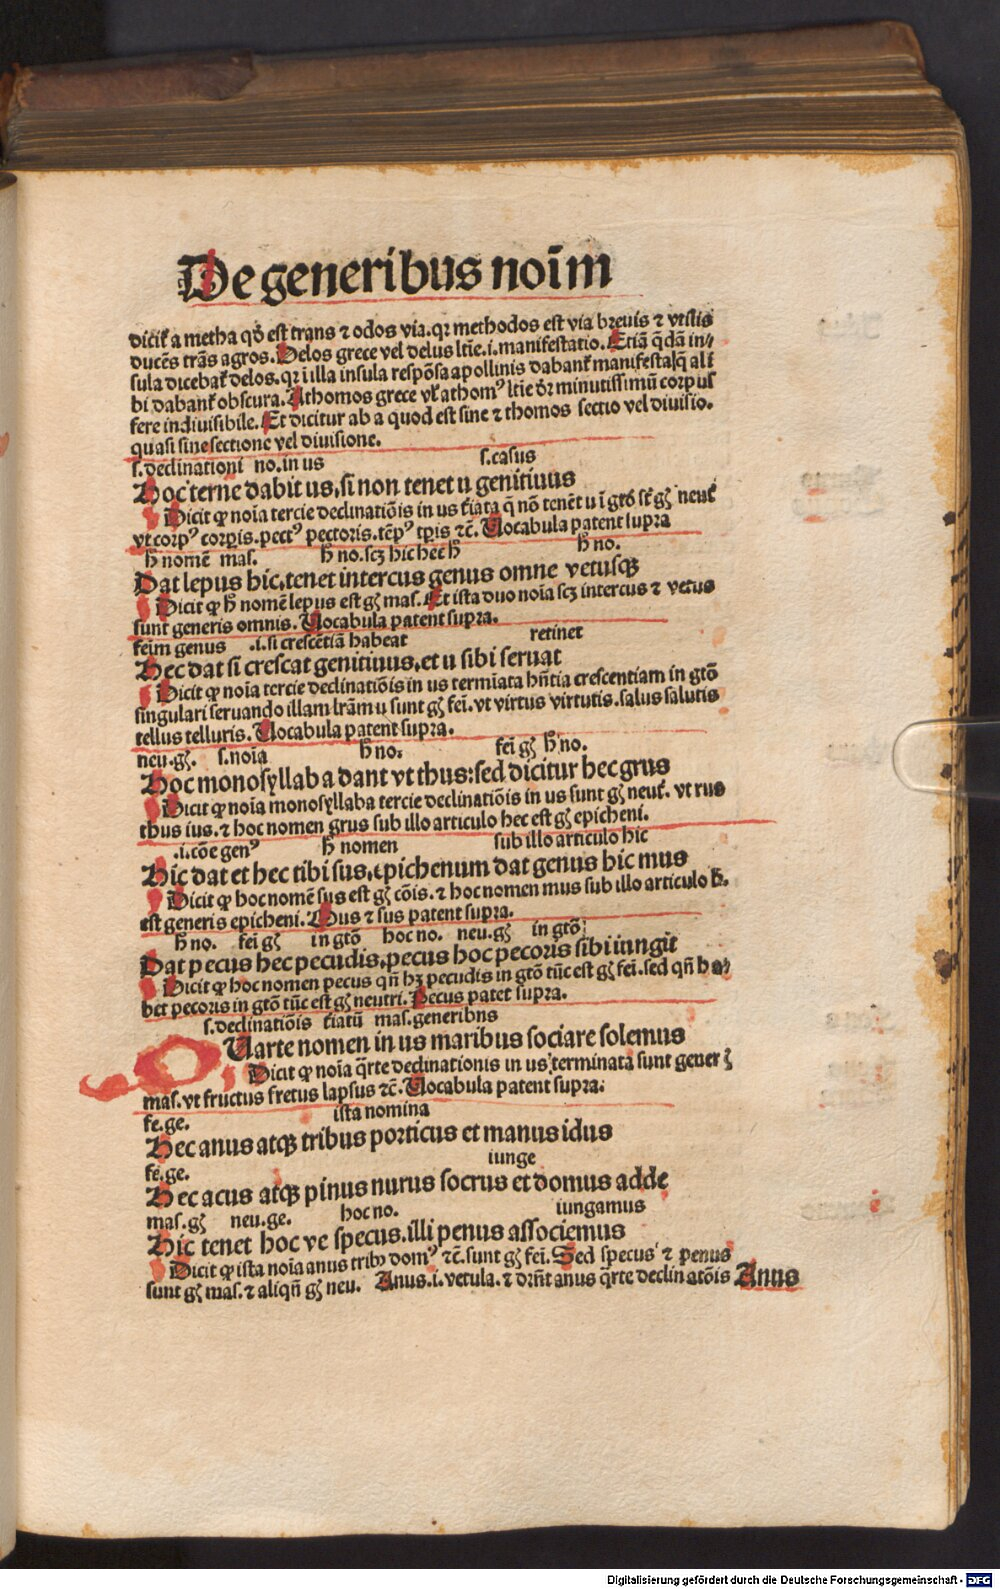 De generibus noīm
dicit᷑ a metha qđ est trans ⁊ odos via.qꝛ methodos est via breuis ⁊ vtilis
ducēs trās agros. Delos grece vel delus ltīe.i.manifestatio. Etiā q̄dā in/
sula dicebat᷑ delos.qꝛ ī illa insula respōsa apollinis dabant᷑ manifesta/q̄ ali
bi dabant᷑ obscura. Athomos grece vl᷑ athomꝰ ltīe dꝛ minutissimū corpus
fere indiuisibile. Et dicitur ab a quod est sine ⁊ thomos sectio vel diuisio.
quasi sine sectione vel diuisione.
s.declinationi no.in us s.casus
Hoc terne dabit us,si non tenet u genitiuus
Dicit ꝙ noīa tercie declinatiōis in us t̄iata q̄ nō tenēt u ī gtō st᷑ gꝫ neut᷑
vt corpꝰ corpꝛis.pectꝰ pectoris.tēpꝰ tꝑis ⁊c̄. Uocabula patent supra
ħ nomē mas. ħ no.scꝫ hic hec ħ ħ no.
Dat lepus hic,tenet intercus genus omne vetusqꝫ
Dicit ꝙ ħ nomē lepus est gꝫ mas. Et ista duo noīa scꝫ intercus ⁊ vetus
sunt generis omnis. Uocabula patent supra.
feīm genus .i.si crescētiā habeat retinet
Hec dat si crescat genitiuus,et u sibi seruat
Dicit ꝙ noīa tercie declinatiōis in us termīata hn̄tia crescentiam in gtō
singulari seruando illam lr̄am u sunt gꝫ feī. vt virtus virtutis.salus salutis
tellus telluris. Uocabula patent supra.
neu.gꝫ. s.noīa ħ no: feī gꝫ ħ no.
Hoc monosyllaba dant vt thus:sed dicitur hec grus
Dicit ꝙ noīa monosyllaba tercie declinatiōis in us sunt gꝫ neut᷑. vt rus
thus ius.⁊ hoc nomen grus sub illo articulo hec est gꝫ epicheni.
.i.cōe genꝰ ħ nomen sub illo articulo hic
Hic dat et hec tibi sus,epichenum dat genus hic mus
Dicit ꝙ hoc nomē sus est gꝫ cōis.⁊ hoc nomen mus sub illo articulo ħ.
est generis epicheni. Mus ⁊ sus patent supra.
ħ no. feī gꝫ in gtō hoc no. neu.gꝫ in gtō
Dat pecus hec pecudis,pecus hoc pecoris sibi iungit
Dicit ꝙ hoc nomen pecus qn̄ hꝫ pecudis in gtō tūc est gꝫ feī.sed qn̄ ha/
bet pecoris in gtō tūc est gꝫ neutri. Pecus patet supra.
s.declinatiōis t̄iatū mas.generibns
QUarte nomen in us maribus sociare solemus
Dicit ꝙ noīa q̄rte declinationis in us terminata sunt generꝫ
mas.vt fructus fretus lapsus ⁊c̄. Uocabula patent supra:
fe.ge. ista nomina
Hec anus atqꝫ tribus porticus et manus idus
fe.ge. iunge
Hec acus atqꝫ pinus nurus socrus et domus adde
mas.gꝫ neu.ge. hoc no. iungamus
Hic tenet hoc ve specus.illi penus associemus
Dicit ꝙ ista noīa anus tribꝫ domꝰ ⁊c̄.sunt gꝫ feī. Sed specus ⁊ penus
sunt gꝫ mas.⁊ aliqn̄ gꝫ neu. Anus.i.vetula.⁊ drn̄t anus q̄rte declinatōis Anus
Digitalisierung gefördert durch die Deutsche Forschungsgemeinschaft - DFG